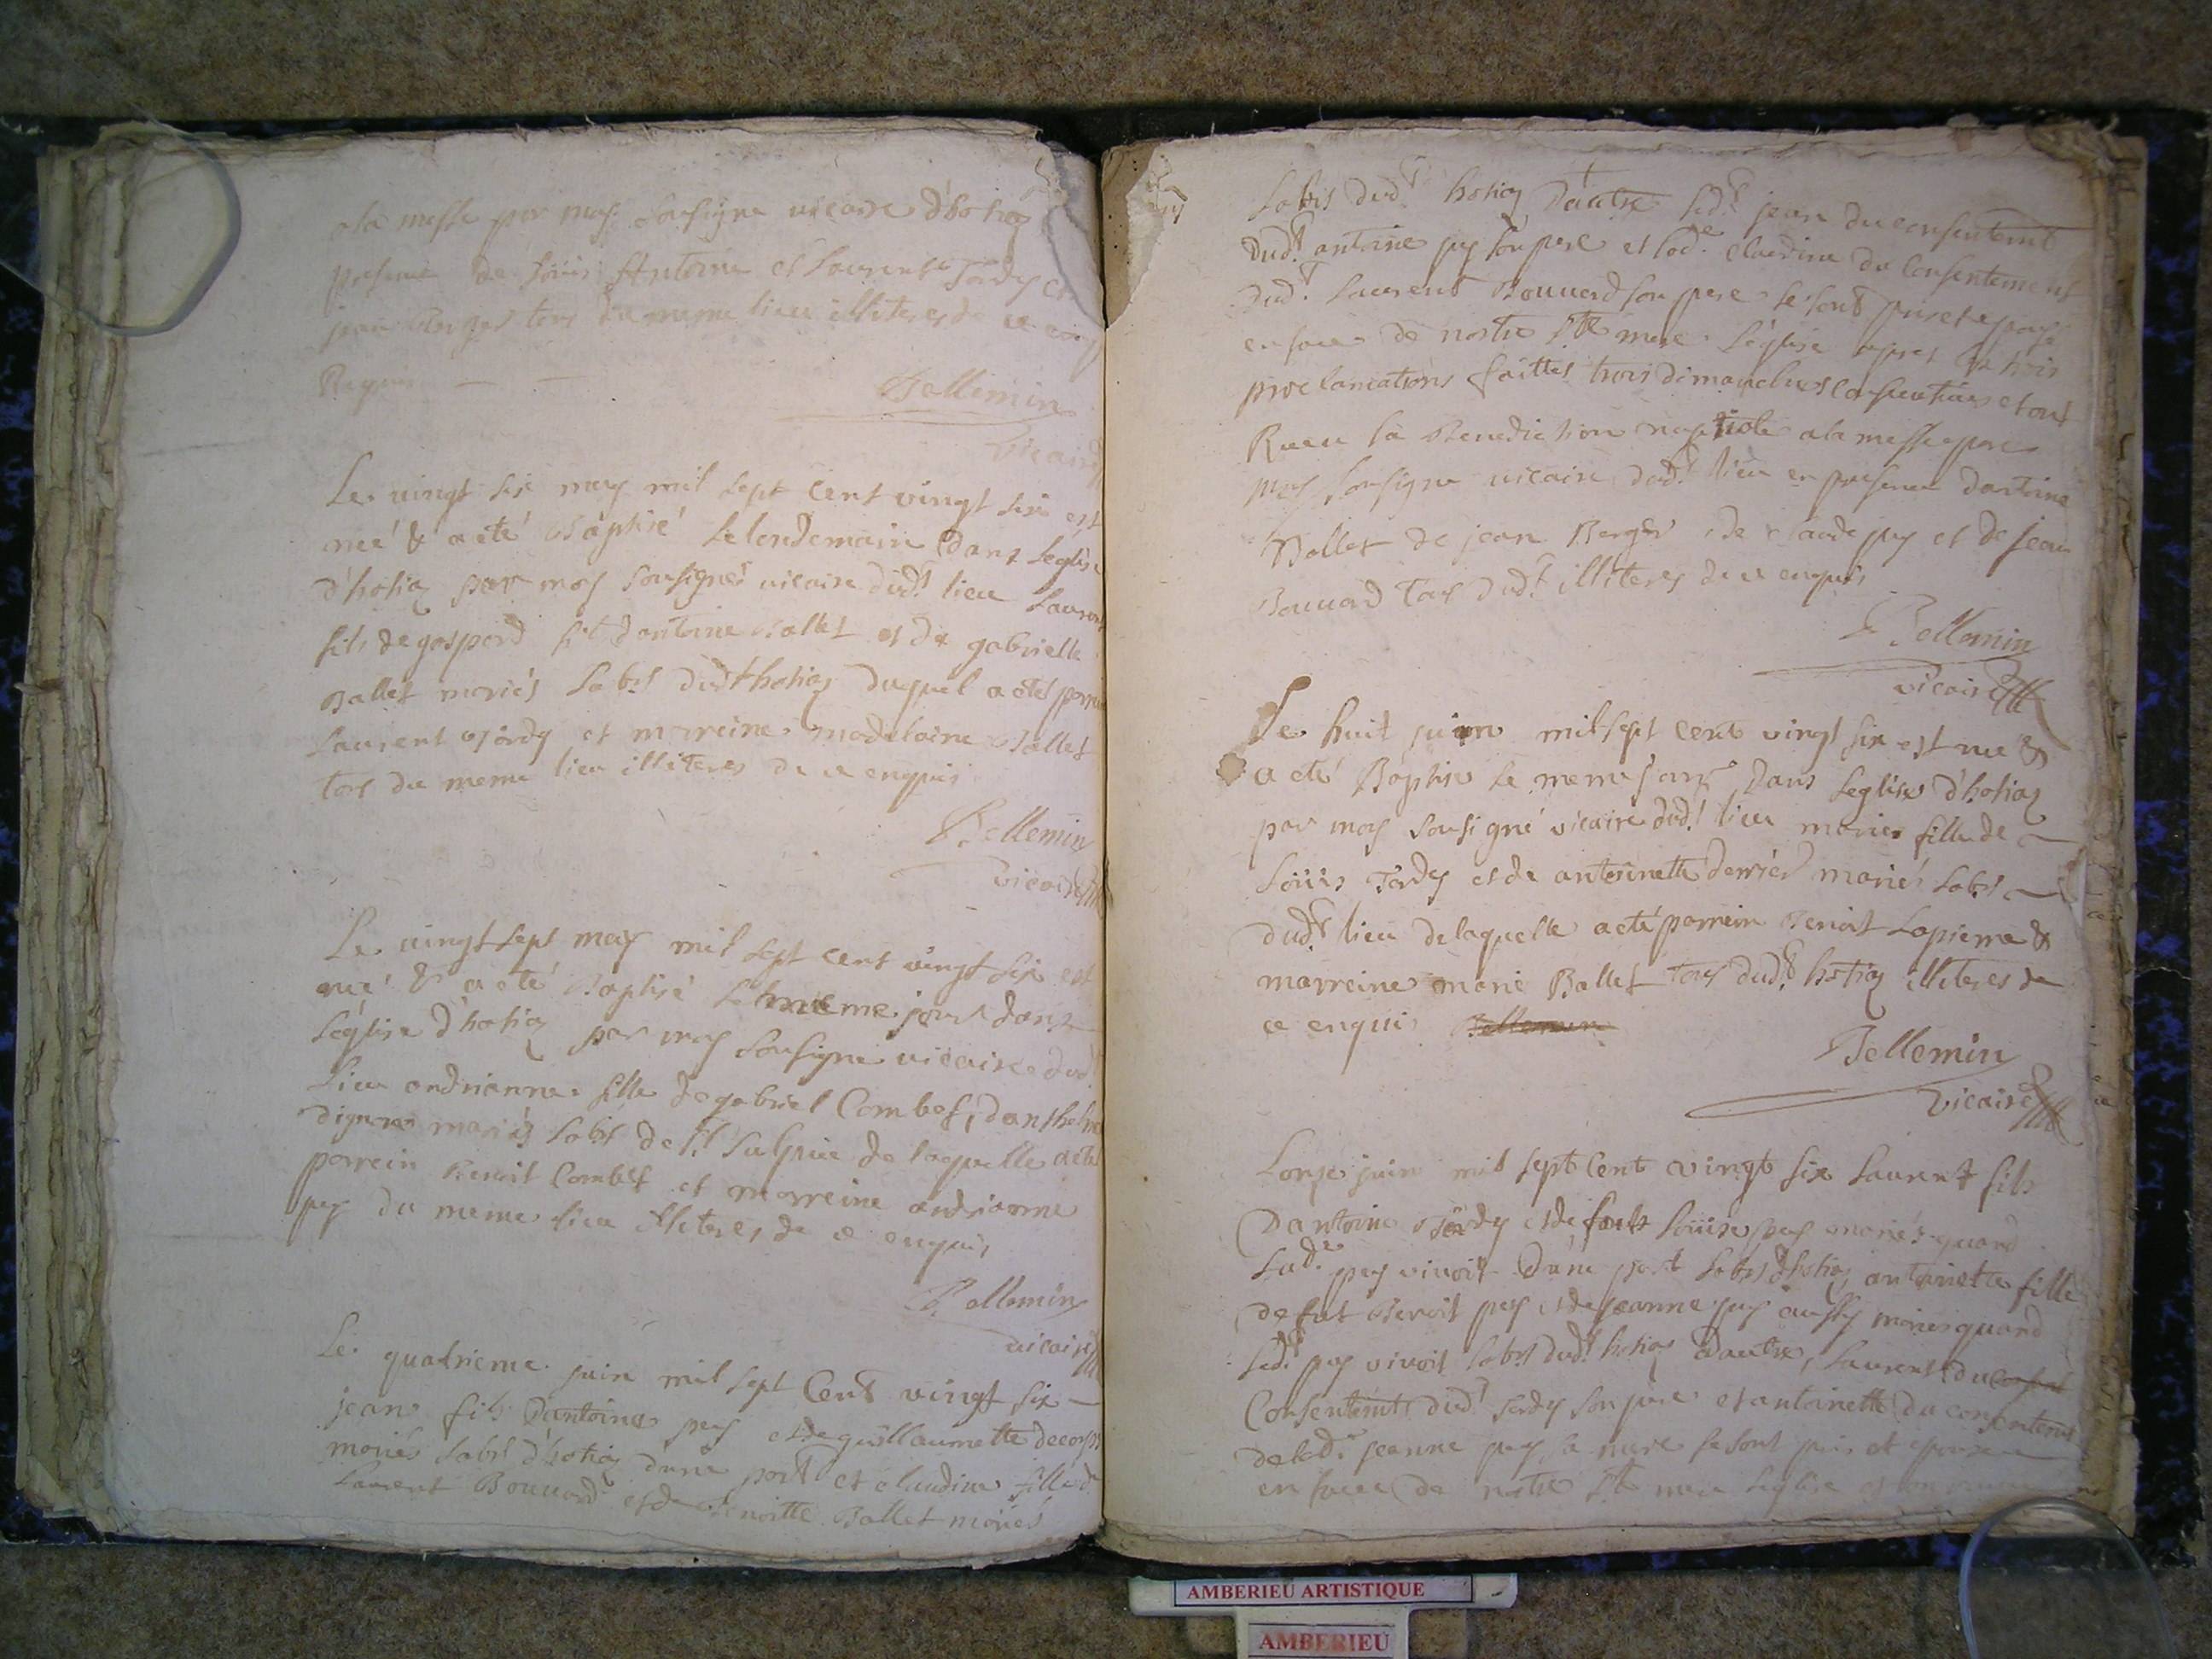 ala messe par moy sousigne vicaire d'hotiaz
presence de Loüis Antoine et Laurent Tardy et
jean Berger tous du meme lieu illiteres de ce enq
Requis
Bellemin
vicaire
Le vingt six may mil sept cent vingt six est
né & a eté Baptisé le lendemain dans leglise
d'hotiaz par moy sousigné vicaire dud.t lieu Laurent
fils de gaspard fils d'antoine Ballet et de gabrielle
Ballet mariés habts dudt hotiaz duquel a eté parrein
Laurent Tardy et marreine madelaine Ballet
tous du meme lieu illiteres de ce enquis
Bellemin
vicaire
Le vingt sept may mil sept cent vingt six est
né & a eté Baptisé le meme jour dans
léglise d'hotiaz par moy sousigne vicaire dud.t
lieu andrianne fille de gabriel Combet, d'anthelme
mariés habts de St Sulpice de laquelle a eté
parrein Benoit Combet et marreine andrianne
puy du meme lieu illiteres de ce enquis
Bellemin
vicaire
Le quatrieme juin mil sept Cent vingt six
jean fils D'antoine puy et de guillaumette decorps
mariés habts d'hotiaz d'une part et claudine fille de
Laurent Bouvard et de Benoitte Ballet mariés
habts dud.t hotiaz D'autre led.t jean du consentemt
Dud.t antoine puy son pere et lad.e claudine du Consentement
dud.t Laurent Bouvard son pere se sont pris et epousé
en face de nostre Ste mere L'église apres trois
proclamations faittes trois dimanches Consecutives et ont
Receu la Benediction nuptiale ala messe par
moy sousigne vicaire dud.t lieu en presence dantoine
Ballet de jean Berger de claude puy et de jean
Bouvard tous dud.t illiteres de ce enquis
Bellemin
vicaire
Le huit juin mil sept cent vingt six est née &
a eté Baptisée le meme jour Dans leglise d'hotiaz
par moy sousigné vicaire dud.t lieu marie fille de
Loüis Tardy et de antoinette derrier mariés habts
dud.t lieu delaquelle a eté parrein Benoit Lapierre &
marreine marie Ballet tous dud.t hotiaz illiteres de
ce enquis Bellemin
Bellemin
vicaire
L'onze juin mil sept Cent vingt six Laurent fils
D'antoine Tardy et de feue Loüise puy mariés quand
Lad.e puy vivoit D'une part habts d'hotiaz, antoinette fille
de fut Benoit puy et de jeanne puy aussy mariés quand
led.t puy vivoit habts dud.t hotiaz d'autre, Laurent du
Consentemt dud.t tardy son pere et antoinette du consentemt
de lad.e jeanne puy sa mere se sont pris et epousé
en face de notre Ste mere leglise
AMBERIEU ARTISTIQUE
AMBERIEU